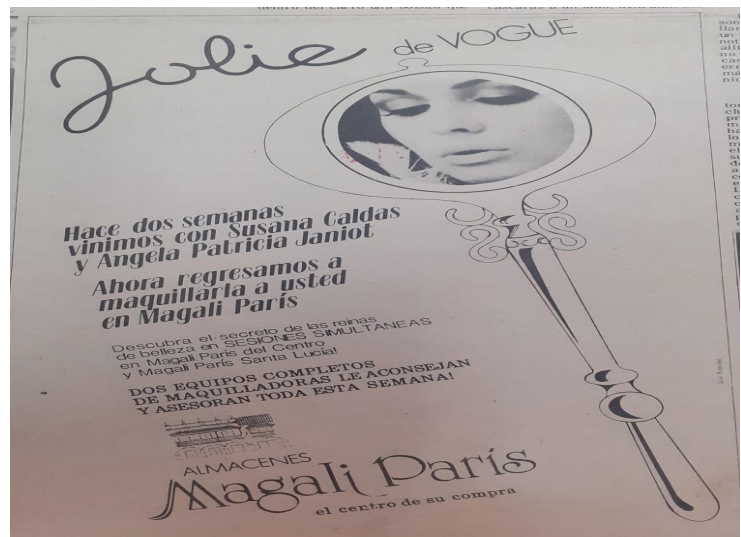 Jolie de VOGUE
Hace dos semanas
vinimos con Susana Caldas
y Angela Patricia Janiot
Ahora regresamos a
maquillarla a usted
en Magali París
Descubra el secreto de las reinas
de belleza en SESIONES SIMULTANEAS
en Magali París del Centro
y Magali París Santa Lucía!
DOS EQUIPOS COMPLETOS
DE MAQUILLADORAS LE ACONSEJAN
Y ASESORAN TODA ESTA SEMANA!
ALMACENES
Magali París
el centro de su compra